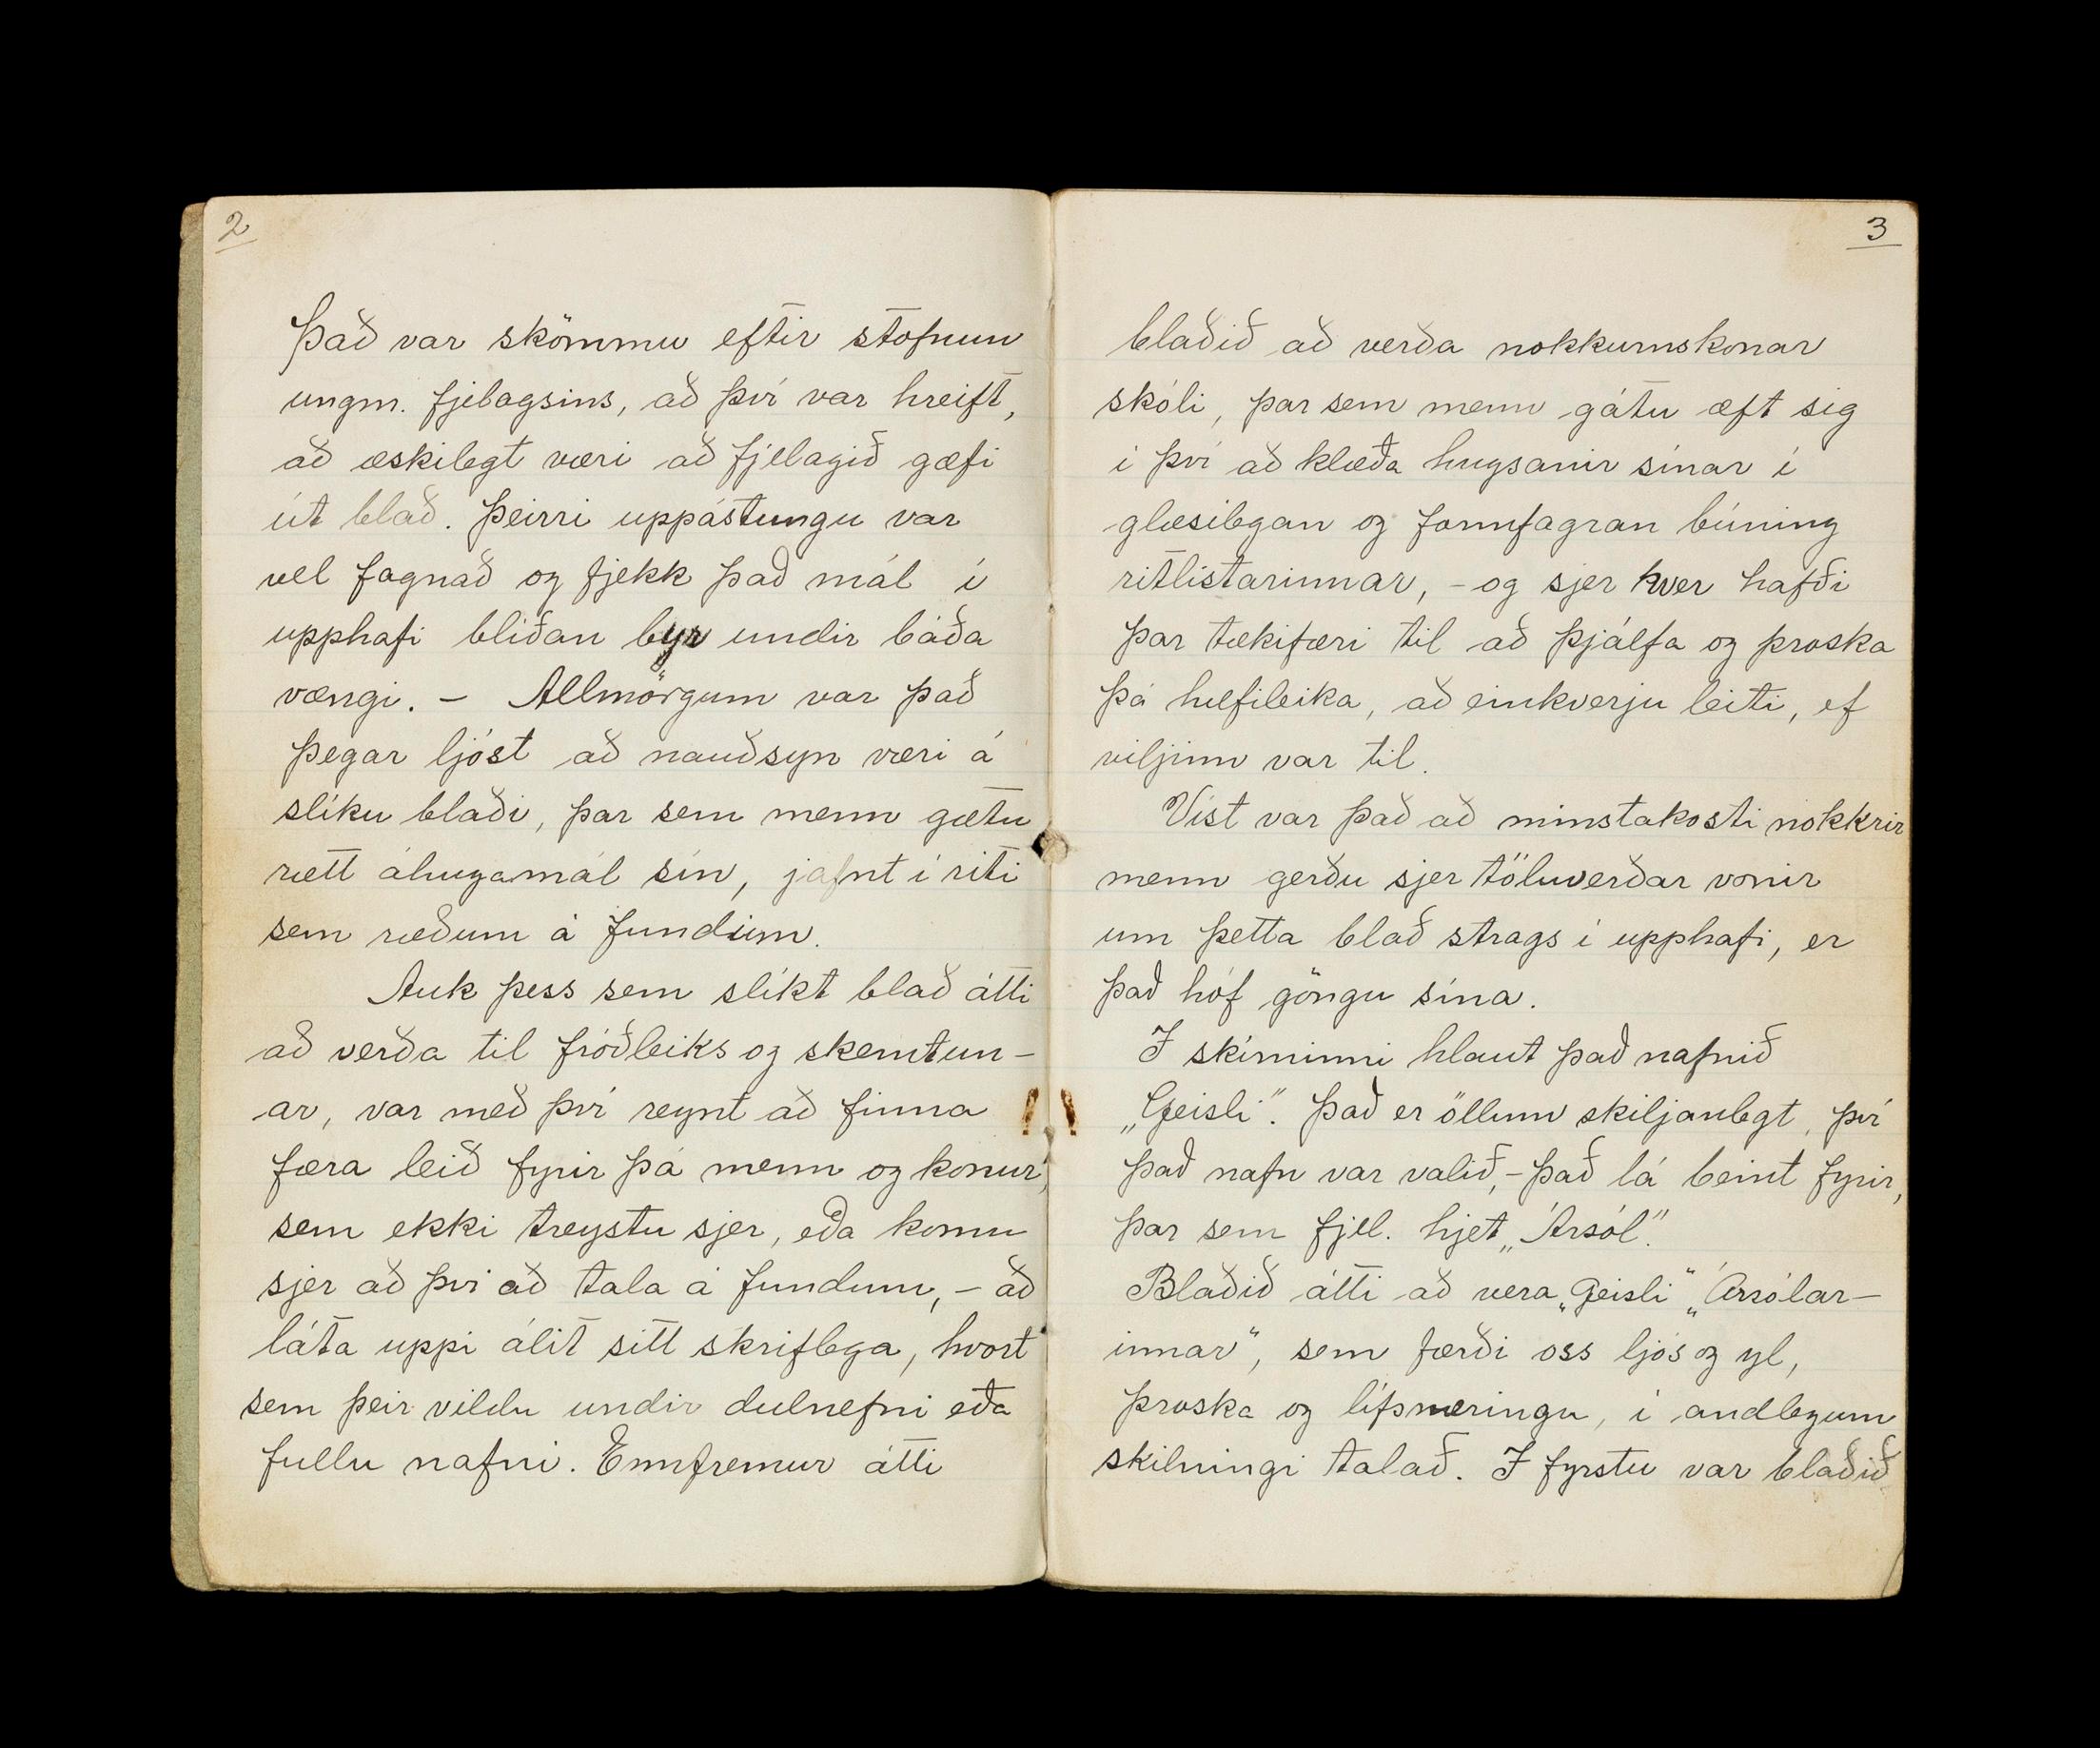 2
Það var skömmu eftir stofnun
ungm. fjelagsins, að því var hreift,
að æskilegt væri að fjelagið gæfi
út blað. Þeirri uppástungu var
vel fagnað og fjekk það mál í
upphafi blíðan byr undir báða
vængi. – Allmörgum var það
þegar ljóst að nauðsyn væri á
slíku blaði, þar sem menn gætu
rætt áhugamál sín, jafnt í riti
sem ræðum á fundum.
Auk þess sem slíkt blað átti
að verða til fróðleiks og skemtun-
ar, var með því reynt að finna
færa leið fyrir þá menn og konur,
sem ekki treystu sjer, eða komu
sjer að því að tala á fundum, – að
láta uppi álit sitt skriflega, hvort
sem þeir vildu undir dulnefni eða
fullu nafni. Ennfremur átti
3
blaðið að verða nokkurnskonar
skóli, þar sem menn gátu æft sig
í því að klæða hugsanir sínar í
glæsilegan og formfagran búning
ritlistarinnar, – og sjer hver hafði
þar tækifæri til að þjálfa og þroska
þá hæfileika, að einhverju leiti, ef
viljinn var til.
Víst var það að minstakosti nokkrir
menn gerðu sjer töluverðar vonir
um þetta blað strags í upphafi, er
það hóf göngu sína.
Í skírninni hlaut það nafnið
„Geisli“. Það er öllum skiljanlegt, því
það nafn var valið, – það lá beint fyrir,
þar sem fjel. hjet „Ársól“.
Blaðið átti að vera „Geisli“ „Ársólar-
innar“, sem færði oss ljós og yl,
þroska og lífsnæringu, í andlegum
skilningi talað. Í fyrstu var blaðið